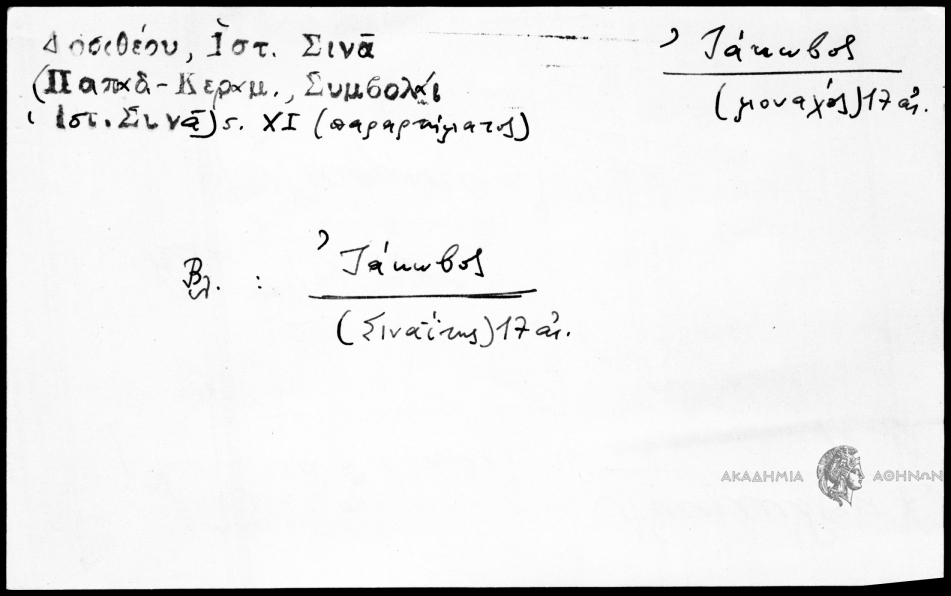 Δοσιθέου, Ἱστ. Σινᾶ
(Παπαδ-Κεραμ., Συμβολαί
Ἱστ. Σινᾶ) σ. XI (παραρτήματος)
Ἰάκωβος
(μοναχός) 17 αἰ.
Βλ. : Ἰάκωβος
(Σιναΐτης) 17 αἰ.
ΑΚΑΔΗΜΙΑ ΑΘΗΝΩΝ